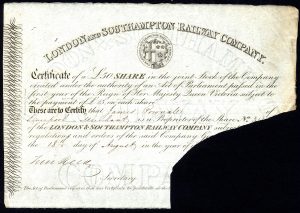 LONDON AND SOUTHAMPTON RAILWAY COMPANY.
Certificate of a £50 SHARE in the joint Stock of the Company
created under the authority of an Act of Parliament passed in the
first year of the Reign of Her Majesty Queen Victoria subject to
the payment of £ on each share
These are to Certify that James
Liverpool Merchant is a Proprietor of the Share No
of the LONDON & SOUTHAMPTON RAILWAY COMPANY subject
regulations and orders of the said Company
the 18th day of August in the year of
Secretary
The Act of Parliament requires that this Certificate be